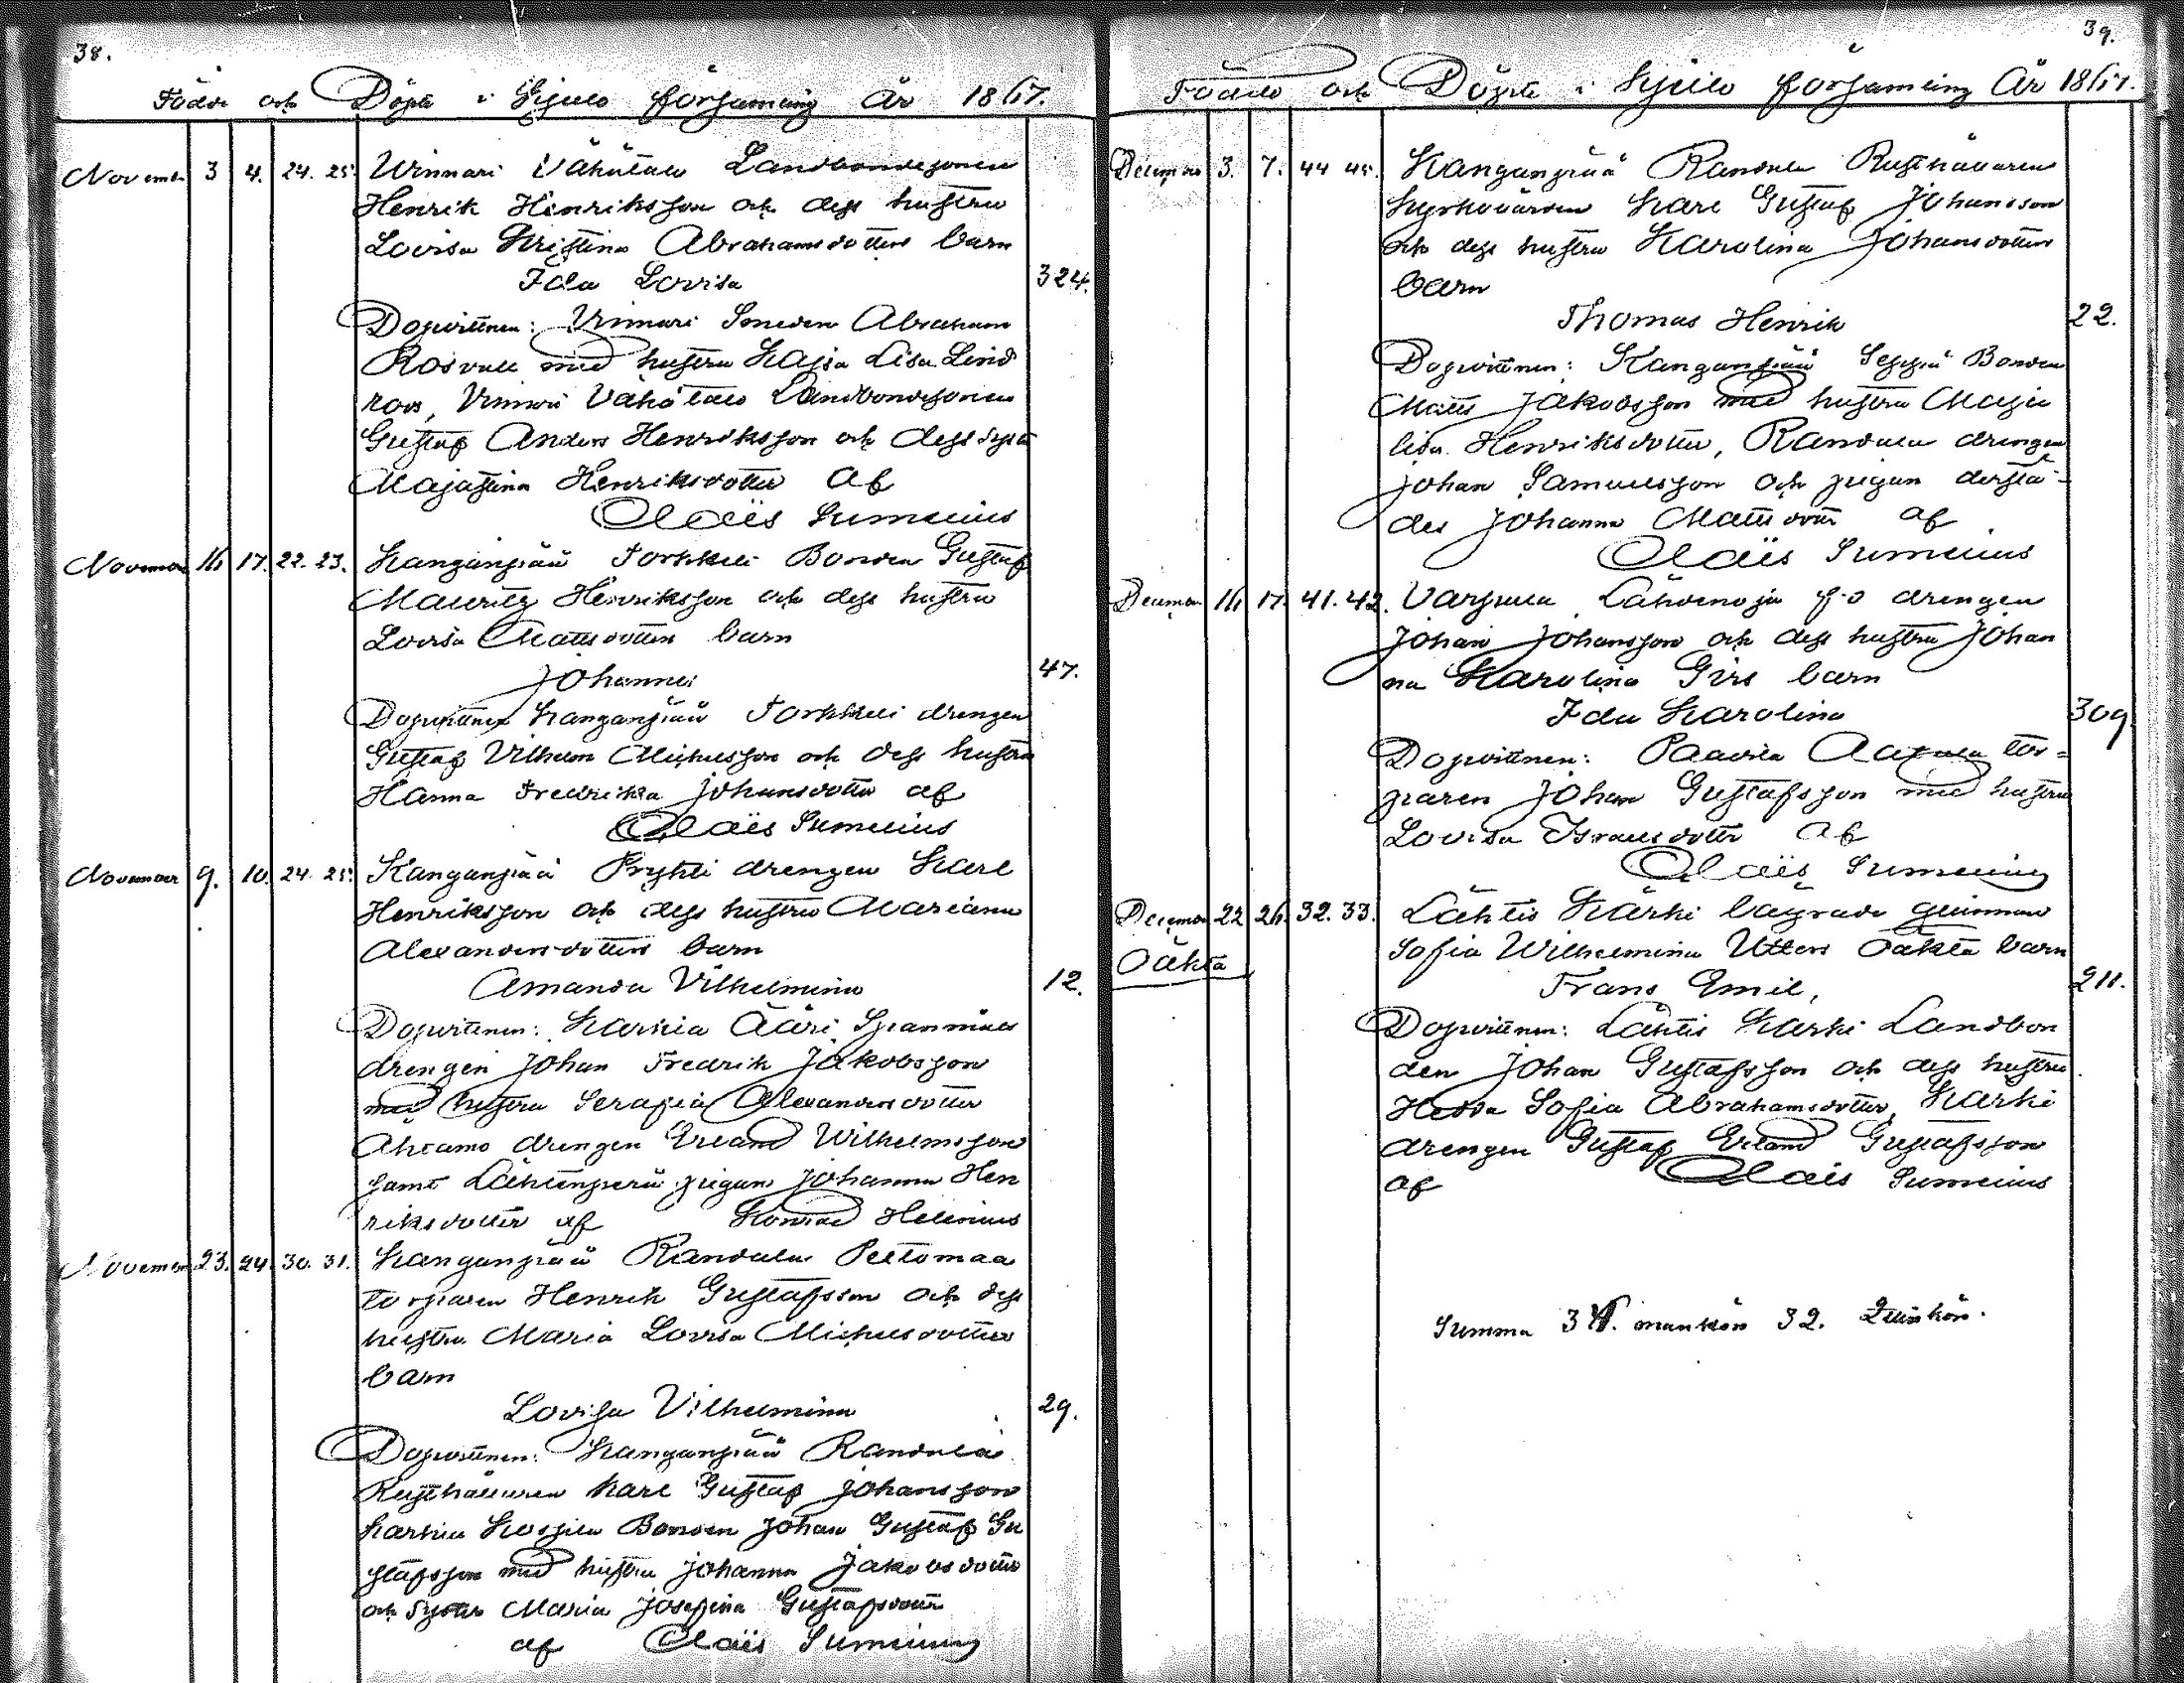 38.
Födde och Döpte i Kjulo församling År 1867.
November 3 4. 24. 25. Winnari Vähätalo Landbondesonen
Henrik Henriksson och dess hustru
Lovisa Kristina Abrahamsdotters barn
Ida Lovisa 324.
Dopvittnen: Vinnari Smeden Abraham
Rosvall med hustru Kajsa Lisa Lind
roos, Vinnari Vähätalo Landbondesonen
Gustaf Anders Henriksson och dess syster
Majastina Henriksdotter af
Claës Sumelius
November 16 17. 22. 23. Kanganpää Torkkeli Bonden Gustaf
Mauritz Henriksson och dess hustru
Lovisa Mattsdotters barn
Johannes 47.
Dopvittnen Kanganpää Torkkeli drengen
Gustaf Vilhelm Michelsson och dess hustru
Hanna Fredrika Johansdotter af
Claës Sumelius
November 9. 10. 24. 25. Kanganpää Prykti drengen Karl
Henriksson och dess hustru Mariana
Alexandersdotters barn
Amanda Vilhelmina 12.
Dopvittnen: Karhia Ääri Spanmåls
drengen Johan Fredrik Jakobsson
med hustru Serafia Alexandersdotter
drengen Erland Wilhelmsson
samt Lähtenperä pigan Johanna Hen
riksdotter af Konrad Helenius
November 23. 24. 30. 31. Kanganpää Randala Peltomaa
torparen Henrik Gustafsson och dess
hustru Maria Lovisa Michelsdotters
barn
Lovisa Vilhelmina 29.
Dopvittnen: Kanganpää Randala
Rusthållaren Karl Gustaf Johansson
Karhia Bonden Johan Gustaf Gu
stafsson med hustru Johanna Jakobsdotter
och Syster Maria Josefina Gustafsdotter
af Claës Sumelius
39.
Födde och Döpte i Kjulo församling År 1867.
December 3. 7. 44 45. Kanganpää Randala Rusthållaren
Kyrkovärden Karl Gustaf Johansson
och dess hustru Karolina Johansdotters
barn
Thomas Henrik 22.
Dopvittnen: Kanganpää Seppä Bonden
Matts Jakobsson med hustru Maja
lisa Henriksdotter, Randala drengen
Johan Samuelsson och pigan derstä-
des Johanna Mattsdotter af
Claës Sumelius
December 16 17. 41. 42. Lähdenoja f.d drengen
Johan Johansson och dess hustru Johan
na Karolina Girs barn
Ida Karolina 309
Dopvittnen: Paavila tor=
paren Johan Gustafsson med hustru
Lovisa Israelsdotter af
Claës Sumelius
December 22 26. 32. 33. Lähtis Kärki lägrade qvinnan
Sofia Wilhelmina Utters Oäkta barn
Oäkta
Frans Emil, 211.
Dopvittnen: Lähtis Kärki Landbon
den Johan Gustafsson och dess hustru
Hedda Sofia Abrahamsdotter, Kärki
drengen Gustaf Erland Gustafsson
af Claës Sumelius
Summa mankön 32. Quinkön.